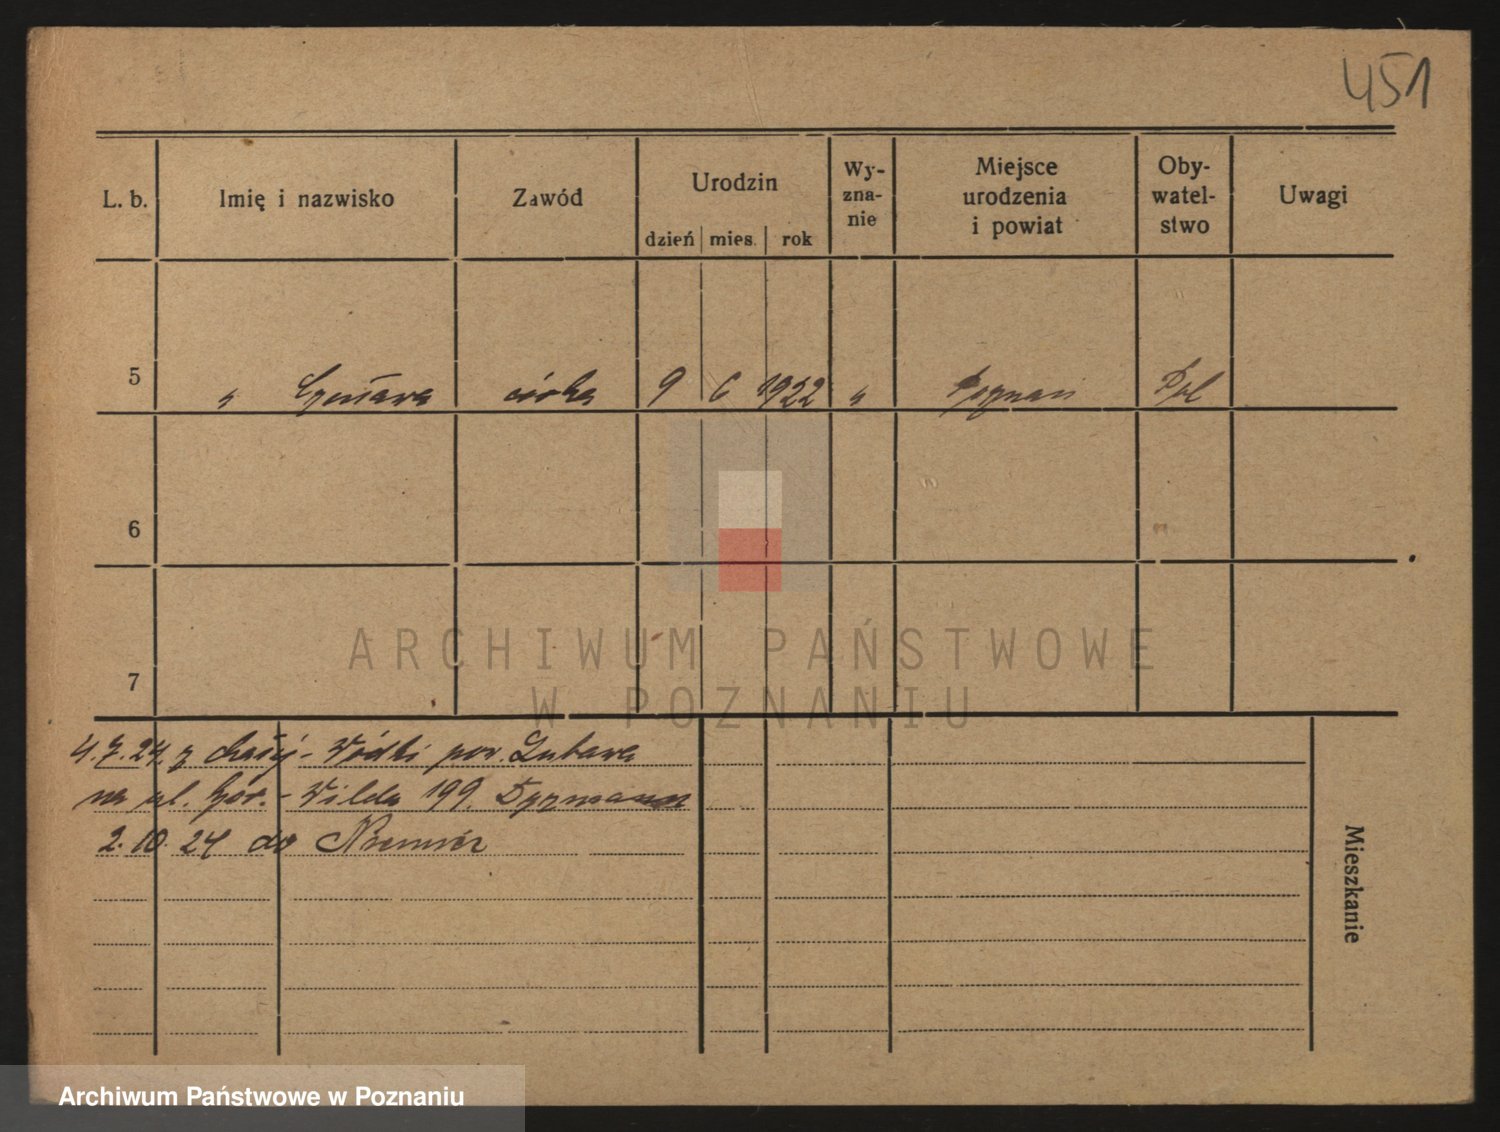 451
L. b. Imię i nazwisko Zawód Urodzin Wy-zna-nie Miejsce urodzenia i powiat Oby-watel-stwo Uwagi
dzień mies. rok
5 " córka 9 6 1922 " Poznań Pol
6
7
ARCHIWUM PAŃSTWOWE
W POZNANIU
4.7.24. z Małej-Wódki pow. Lubawa
na ul. Gór.-Wilda 199.
2.10.24 do Niemiec
Mieszkanie
Archiwum Państwowe w Poznaniu